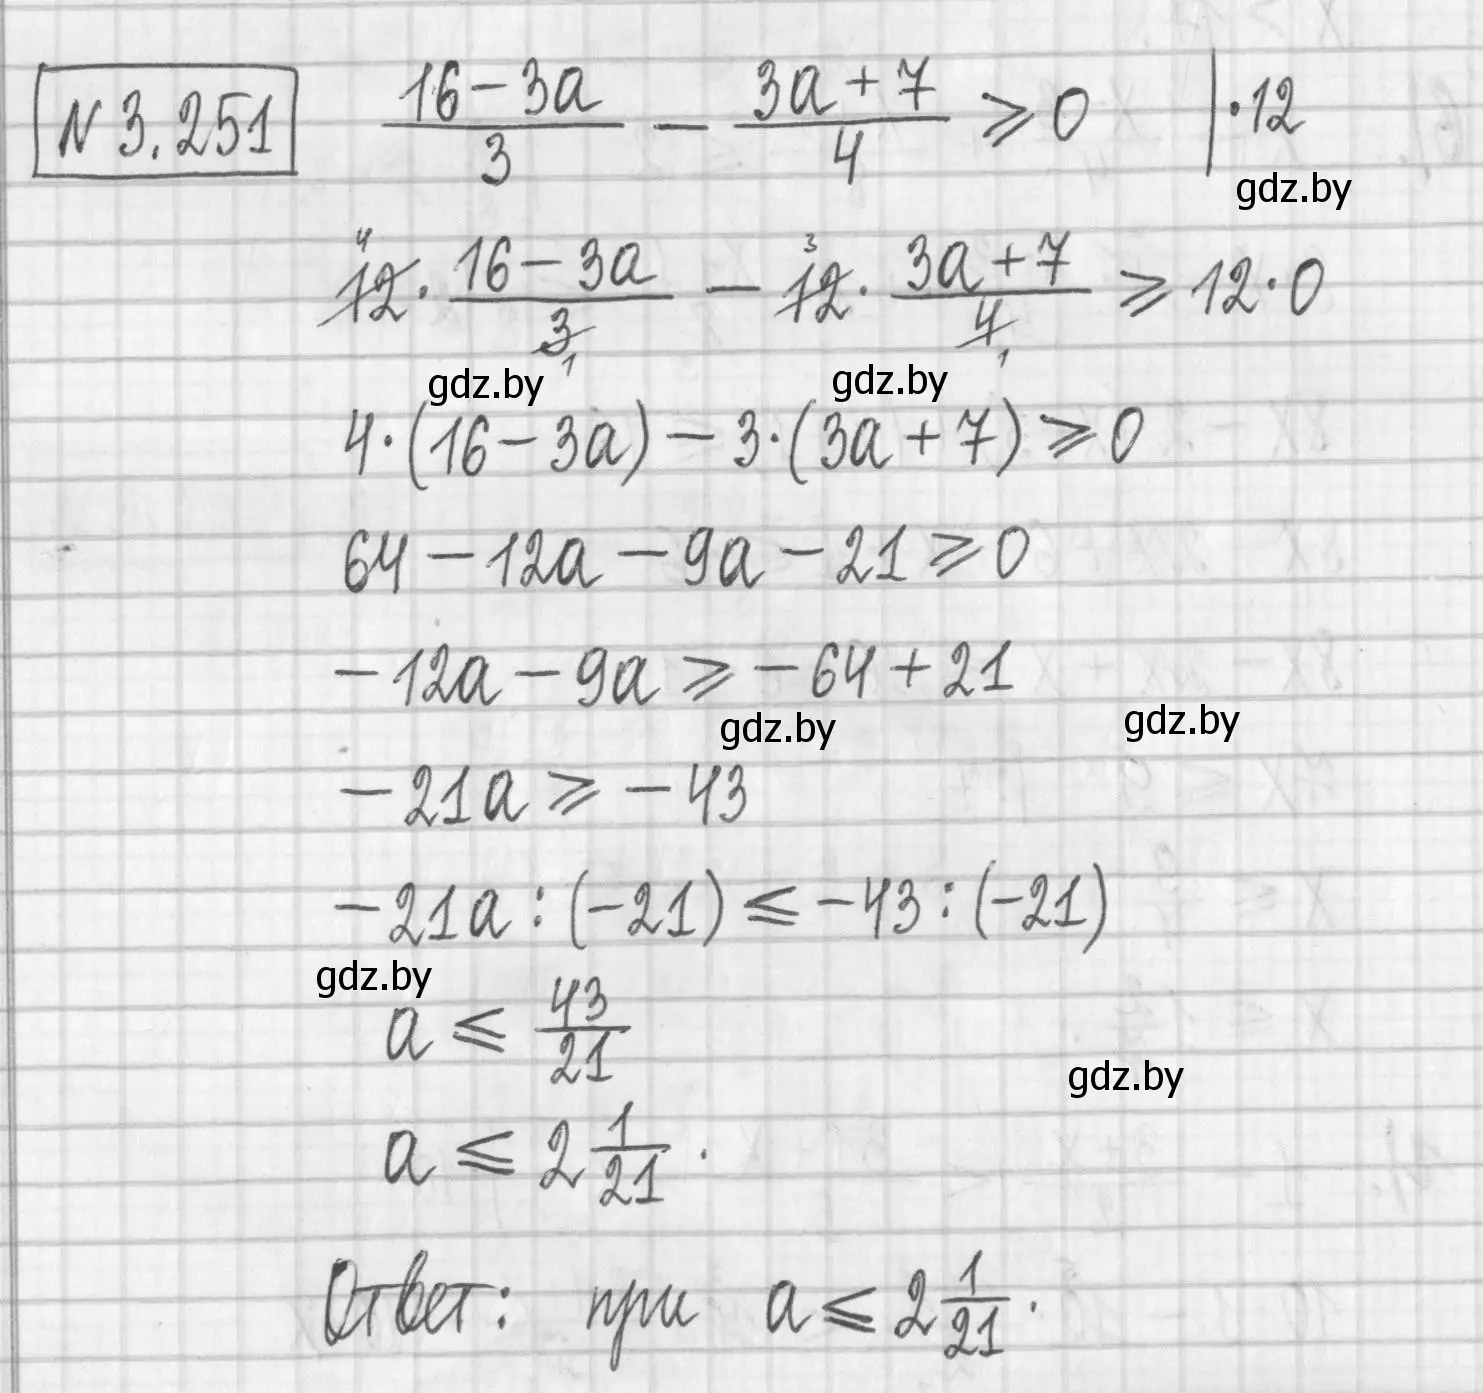 N 3.251 (16 − 3a)/3 − (3a + 7)/4 ⩾ 0 | ·12
gdz.by
12⁴ · (16 − 3a)/3₁ − 12³ · (3a + 7)/4₁ ⩾ 12 · 0
gdz.by gdz.by
4·(16 − 3a) − 3·(3a + 7) ⩾ 0
64 − 12a − 9a − 21 ⩾ 0
−12a − 9a ⩾ −64 + 21
gdz.by gdz.by
−21a ⩾ −43
−21a : (−21) ⩽ −43 : (−21)
gdz.by
a ⩽ 43/21
gdz.by
a ⩽ 2 1/21.
Ответ: при a ⩽ 2 1/21.